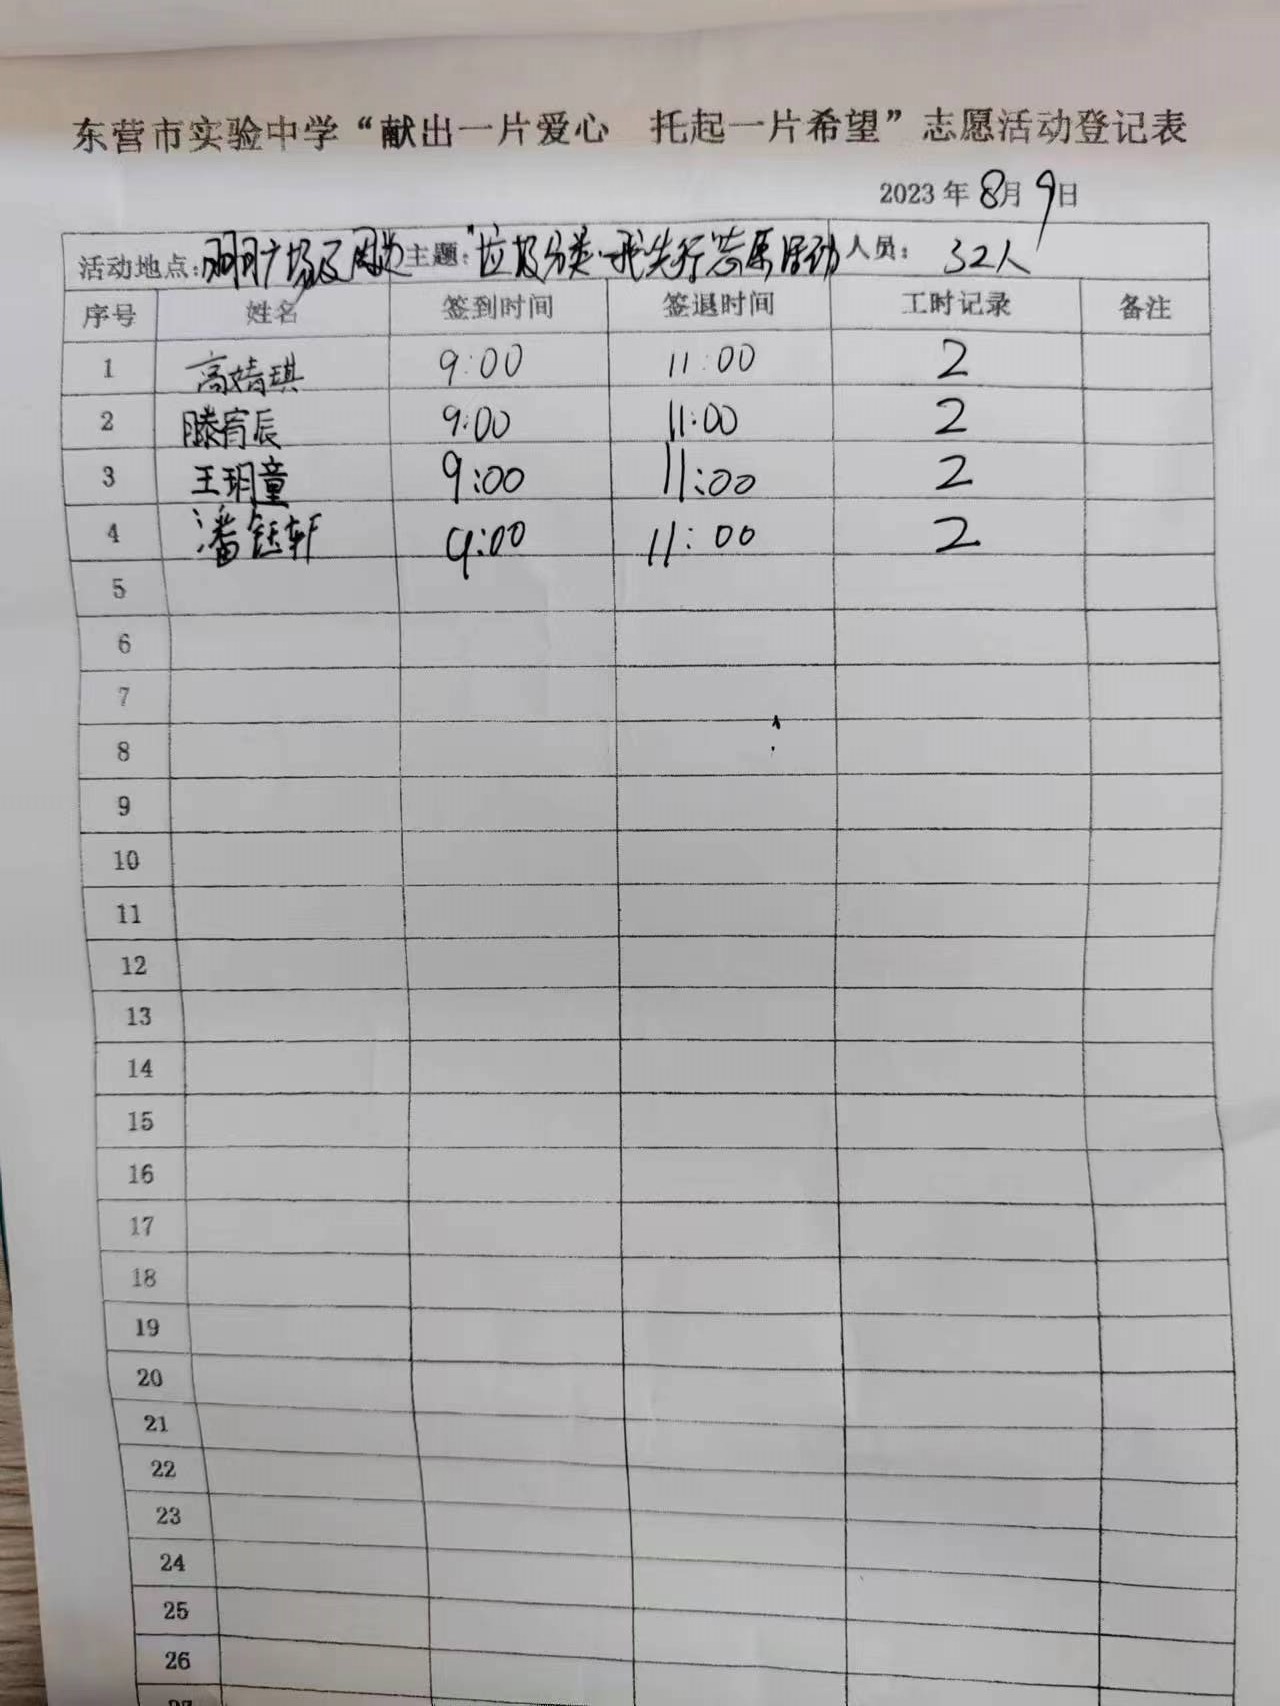 东营市实验中学“献出一片爱心 托起一片希望”志愿活动登记表
2023年8月9日
活动地点: 广场及周边 主题:“垃圾分类·我先行志愿活动 人员: 32人
序号 姓名 签到时间 签退时间 工时记录 备注
1 高婧琪 9:00 11:00 2
2 滕宥辰 9:00 11:00 2
3 王玥童 9:00 11:00 2
4 潘钰轩 9:00 11:00 2
5
6
7
8
9
10
11
12
13
14
15
16
17
18
19
20
21
22
23
24
25
26
27